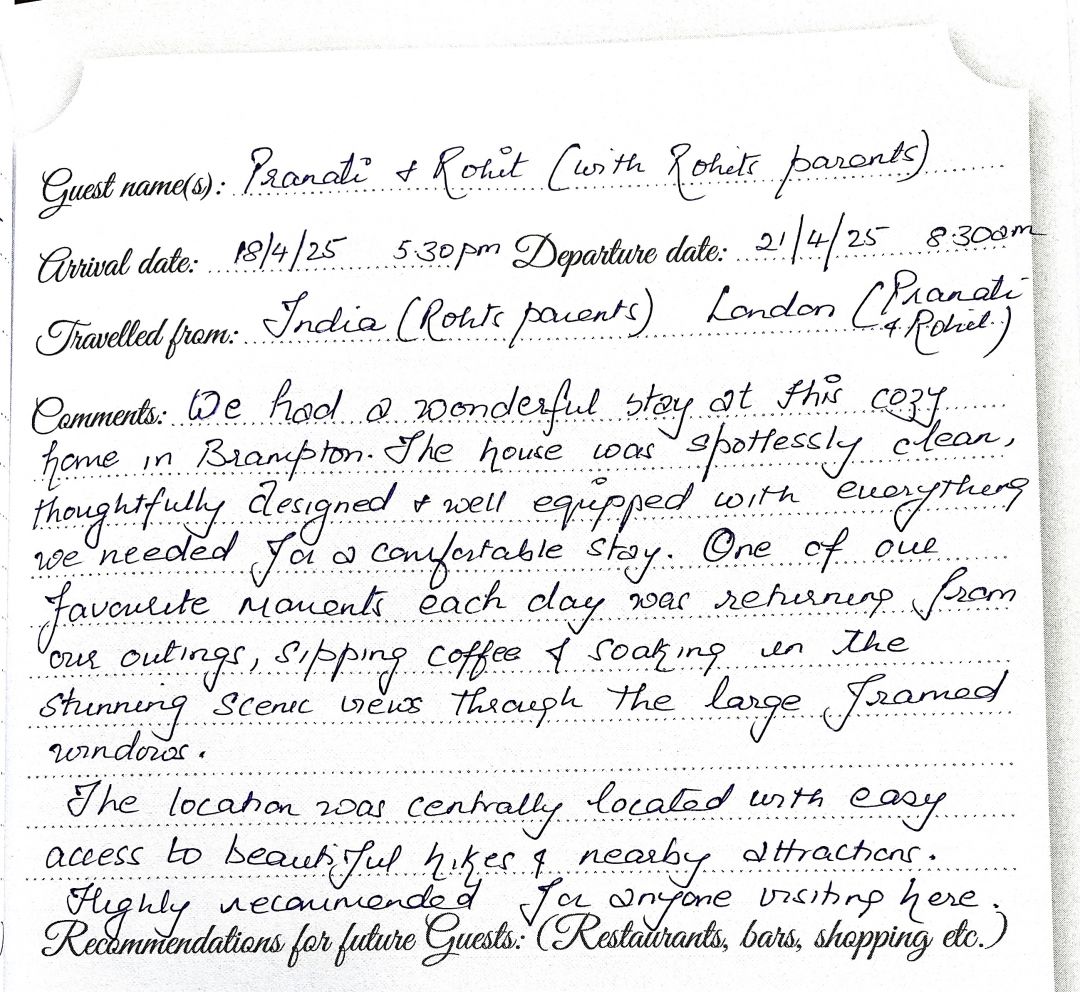 Guest name(s): Pranati & Rohit (with Rohits parents)
Arrival date: 18/4/25 5.30pm Departure date: 21/4/25 8.30am
Travelled from: India (Rohits parents) London (Pranati & Rohit)
Comments: We had a wonderful stay at this cozy
home in Brampton. The house was spotlessly clean,
thoughtfully designed & well equipped with everything
we needed for a comfortable stay. One of our
favourite moments each day was returning from
our outings, sipping coffee & soaking in the
stunning scenic views through the large framed
windows.
The location was centrally located with easy
access to beautiful hikes & nearby attractions.
Highly recommended for anyone visiting here.
Recommendations for future Guests: (Restaurants, bars, shopping etc.)